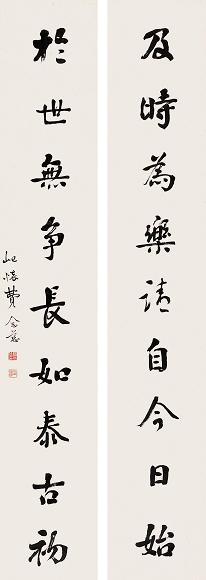 及時為樂請自今日始
於世無争長如泰古初
屺懷費念慈